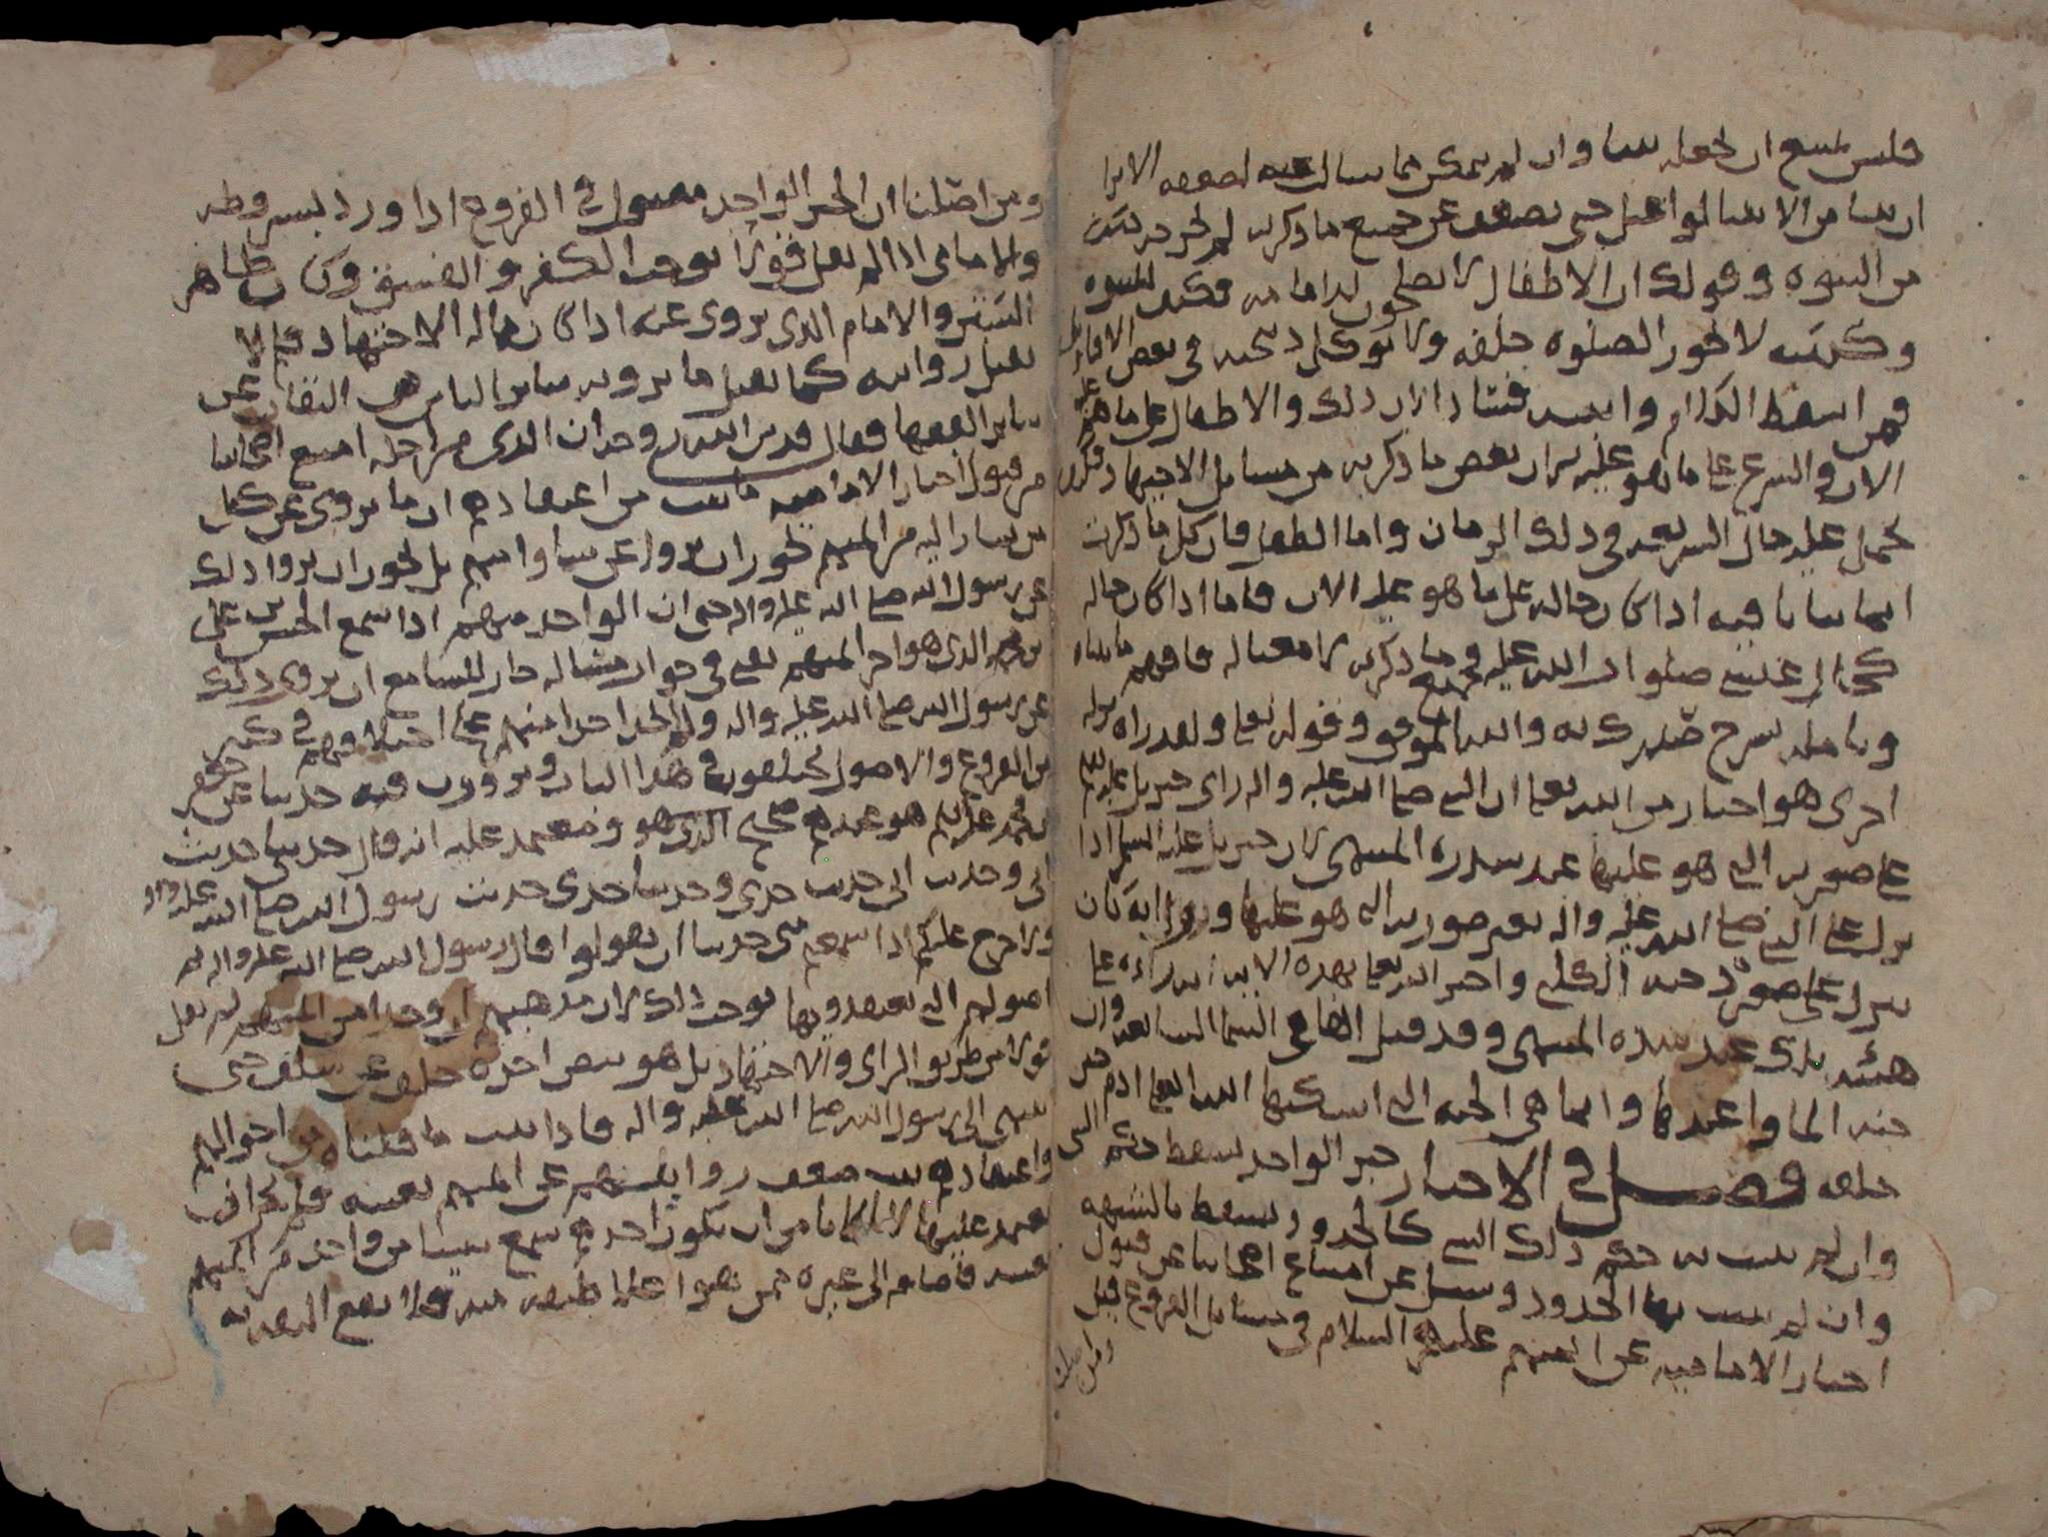 فليس تمتنع ان يجعله نبيا وان لم يمكن مما سالت عنه لضعفه الا ترا
ان نبيا من الانبيا لو اعتل حتى يضعف عن جميع ما ذكرته لم يخرج
من النبوه وقولك ان الاطفال لا يصلحون لامامه فكيف للنبوه
وكونه لا تجوز الصلوه خلفه ولا توكل ذبيحته في بعض الاقاويل
فمن اسقط الكلام وذلك والاطفال على ما هم عليه
الان والشرع على ما هو عليه لان بعض ما ذكرته من مسايل الاجتهاد فكيف
يحمل عليه حال الشريعه في ذلك الزمان واما الطفل فان كل ما ذكرت
انما يتاتا فيه اذا كان حاله على ما هو عليه الان فاما اذا كان حاله
كحال عيسى صلوات الله عليه فجميع ما ذكرته لا معنا له فافهم ما قلناه
وتامله يشرح صدرك به والله الموفق وقوله تعلى ولقد راه نزله
اخرى هو اخبار من الله تعلى ان النبي صلى الله عليه واله راى جبريل عليه السلم
على صورته التي هو عليها عند سدره المنتهى لان جبريل عليه السلم اذا
نزل على النبي صلى الله عليه واله بغير صورته التي هو عليها وروي انه كان
ينزل على صوره دحيه الكلبي واخبر الله تعلى بهذه الايه انه راه على
هيئته عند سدره المنتهى وقد قيل انها في السما السابعه وان
جنه الماوا عندها وانما هي الجنه التي اسكنها الله تعلى ادم حين
خلقه فصل في الاخبار خبر الواحد يسقط حكم الشي
وان لم يثبت به حكم ذلك الشي كالحدود يسقط بالشبهه
وان لم يثبت بها الحدود وسئل عن امتناع اصحابنا عن قبول
اخبار الاماميه عن ايمتهم عليهم السلام في مسايل الفروع قبل
ومن اصلنا
ومن اصلنا ان الخبر الواحد مقبول في الفروع اذا ورد بشروطه
والامامي اذا لم يقل قولا يوجب الكفر والفسق وكان ظاهر
الستر والامام الذي يروى عنه اذا كان حاله الاجتهاد فلم لا
تقبل روايته كما تقبل ما يرويه ساير الناس من الثقات عن
ساير الفقها فقال قدس الله روحه ان الذي من اجله امتنع اصحابنا
من قبول اخبار الاماميه ما ثبت من اعتقادهم ان ما يروى عن كل
من يشار اليه من ايمتهم يجوز ان يروا عن ساير ايمتهم بل يجوز ان يروا ذلك
عن رسول الله صلى الله عليه واله حتى ان الواحد منهم اذا سمع الحسن بن علي
بن محمد الذي هو اخر ايمتهم يفتي في جواب مساله جاز للسامع ان يروي ذلك
عن رسول الله صلى الله عليه واله ولا نجد احدا منهم على اختلافهم في كثير
من الفروع والاصول يختلفون في هذا الباب ويروون فيه حديثا عن جعفر
بن محمد عليه السلم هو عندهم صحيح ومعتمد عليه انه قال حديثي حديث
ابي وحديث ابي حديث جدي وحديث جدي حديث رسول الله صلى الله عليه واله
ولا حرج عليكم اذا سمعتم مني حديثا ان تقولوا قال رسول الله صلى الله عليه واله ثم
اصولهم التي يعتقدونها توجب ذلك لان مذهبهم ان واحدا من ايمتهم لم يقل
قولا من طريق الراي والاجتهاد بل هو بنص اخذه خلف عن سلف حتى
ينتهي الى رسول الله صلى الله عليه واله فاذا ثبت ما قلناه من احوالهم
واعتقادهم ثبت ضعف روايتهم عن ايمتهم بعينه فلم يجز ان
نعتمد عليها لانا لا نامن ان يكون احدهم سمع شيئا من واحد من ايمتهم
فاضافه الى غيره ممن هو اعلا طبقه منه فلا تقع الثقه به